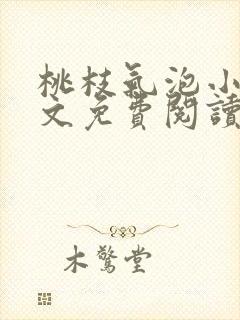 桃枝氣泡小
文免費閱讀
木鷩堂